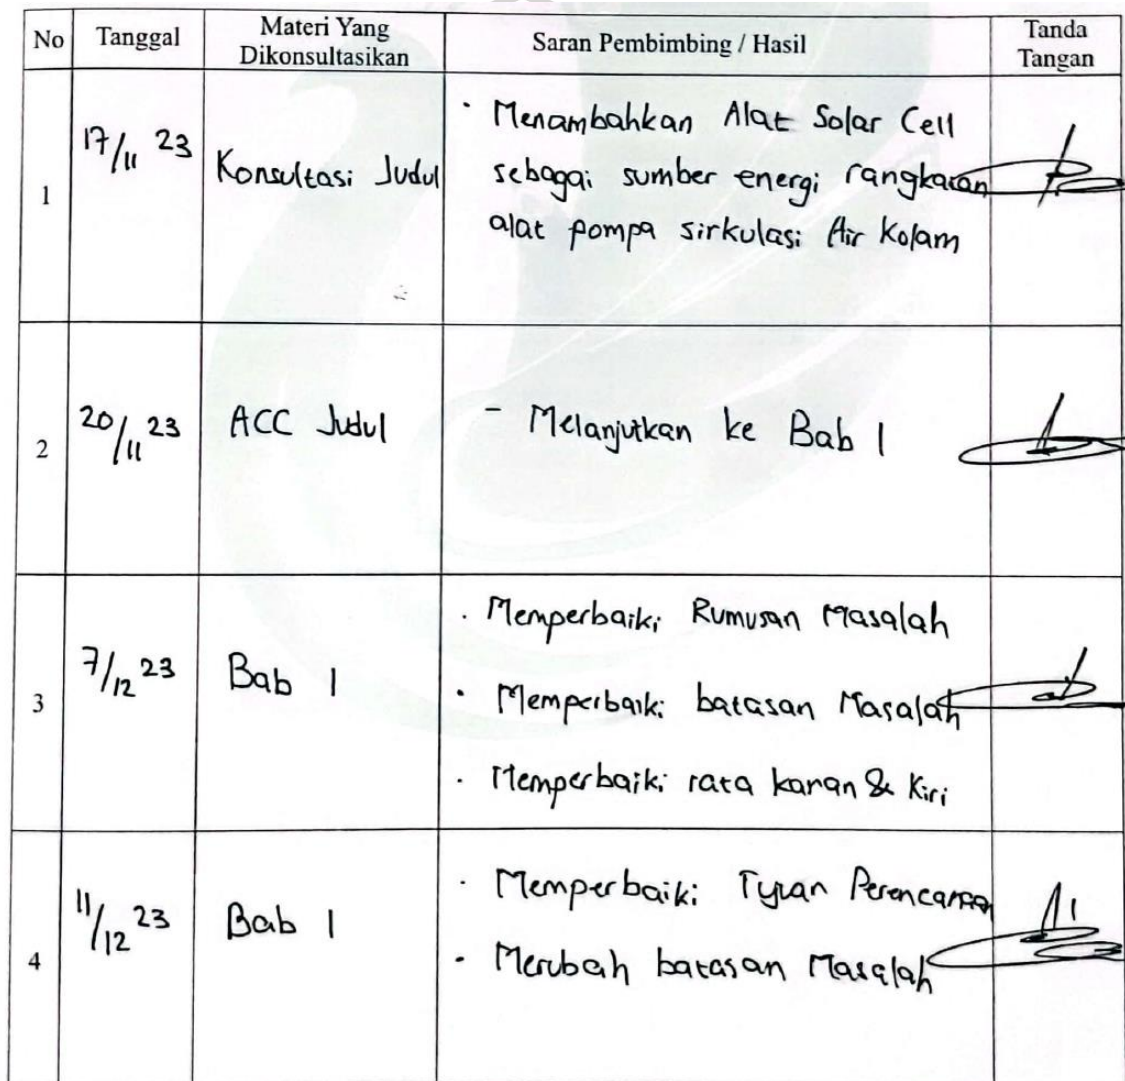 No Tanggal Materi Yang Dikonsultasikan Saran Pembimbing / Hasil Tanda Tangan
1 17/11 23 Konsultasi Judul · Menambahkan Alat Solar Cell
sebagai sumber energi rangkaian
alat pompa sirkulasi Air Kolam
2 20/11 23 ACC Judul - Melanjutkan ke Bab 1
3 7/12 23 Bab 1 · Memperbaiki Rumusan Masalah
· Memperbaiki batasan Masalah
· Memperbaiki rata kanan & Kiri
4 11/12 23 Bab 1 · Memperbaiki Tujuan
· Merubah batasan Masalah